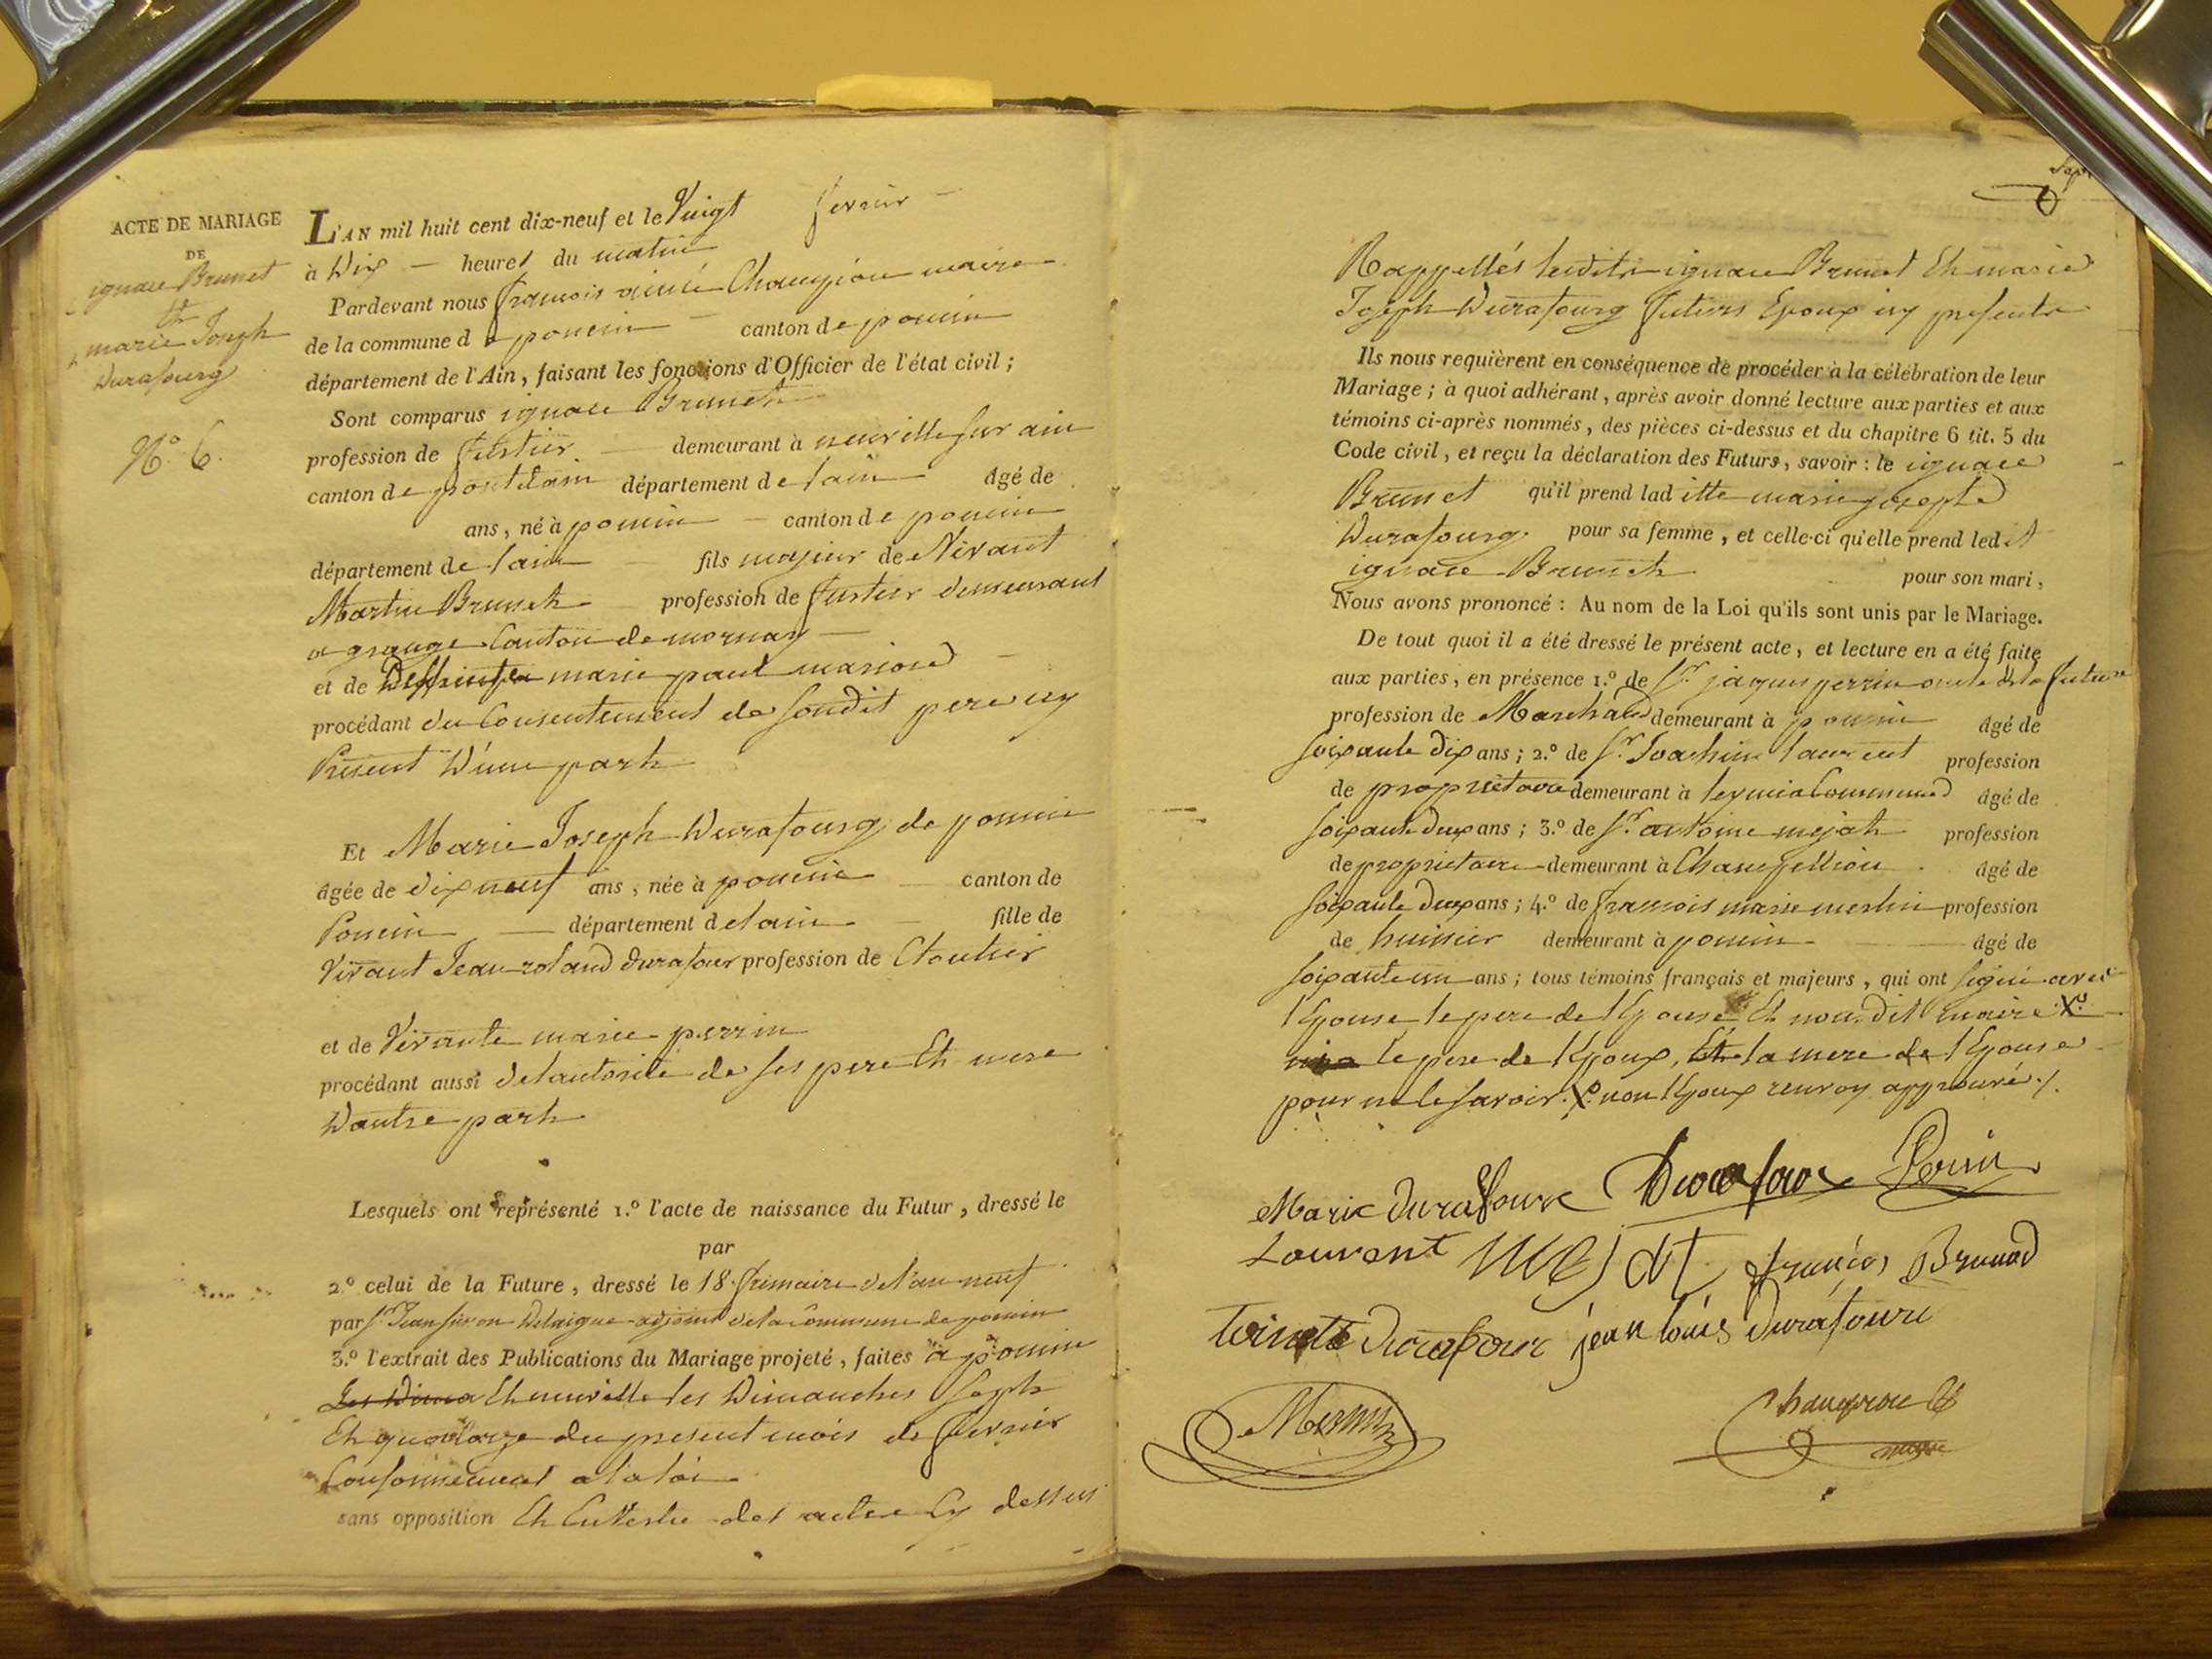 ACTE DE MARIAGE
DE
ignace Brunet
Et
marie Joseph
Durafourg
N.º 6.
L'AN mil huit cent dix-neuf et le Vingt fevrier
à Dix heures du matin
Pardevant nous françois aimé Champion maire
de la commune de poncin canton de poncin
département de l'Ain, faisant les fonctions d'Officier de l'état civil ;
Sont comparus ignace Brunet
profession de futier demeurant à neuville sur ain
canton de pontdain département de lain âgé de
ans, né à poncin canton de poncin
département de lain fils majeur de Vivant
Martin Brunet profession de futier demeurant
a grange Canton de mornay
et de Deffunte marie paul
procédant du Consentement de sondit pere icy
Présent D'une part
Et Marie Joseph Durafourg de poncin
âgée de dix neuf ans, née à poncin canton de
Poncin département de lain fille de
Vivant Jean roland durafour profession de Cloutier
et de Vivante marie perrin
procédant aussi de lautorité de ses pere Et mere
Dautre part
Lesquels ont représenté 1.º l'acte de naissance du Futur, dressé le
par
2.º celui de la Future, dressé le 18. frimaire de l'an neuf
par Sr. Jean Delaigue adjoint de la Commune de poncin
3.º l'extrait des Publications du Mariage projeté, faites à poncin
Les Dima Et neuville les Dimanches Sept
Et quatorze du present mois de fevrier
Conformement a la loi
sans opposition Et En Vertu des actes Cy dessus
Rappellés lesdits ignace Brunet Et marie
Joseph Durafourg futurs Epoux icy presents
Ils nous requièrent en conséquence de procéder à la célébration de leur
Mariage ; à quoi adhérant, après avoir donné lecture aux parties et aux
témoins ci-après nommés, des pièces ci-dessus et du chapitre 6 tit. 5 du
Code civil, et reçu la déclaration des Futurs, savoir : le ignace
Brunet qu'il prend laditte marie josepte
Durafourg pour sa femme, et celle-ci qu'elle prend ledit
ignace Brunet pour son mari,
Nous avons prononcé : Au nom de la Loi qu'ils sont unis par le Mariage.
De tout quoi il a été dressé le présent acte, et lecture en a été faite
aux parties, en présence 1.º de Sr. jaques perrin oncle de la future
profession de Marchand demeurant à poncin âgé de
soixante dix ans ; 2.º de Sr. Joachim laurent profession
de proprietaire demeurant à âgé de
soixante deux ans ; 3.º de Sr. antoine mejat profession
de proprietaire demeurant à Champellion âgé de
soixante deux ans ; 4.º de françois marie merlin profession
de huissier demeurant à poncin âgé de
soixante un ans ; tous témoins français et majeurs, qui ont signé avec
lEpouse le pere de lEpouse Et nousdit maire X.
le pere de lEpoux, Et la mere de lEpouse
pour ne le savoir. X. non lEpoux renvoy approuvé ./.
Marie durafour Durafour Perrin
Laurent MEJAT françois Brunod
Durafour jean louis durafour
Merlin Champion
maire